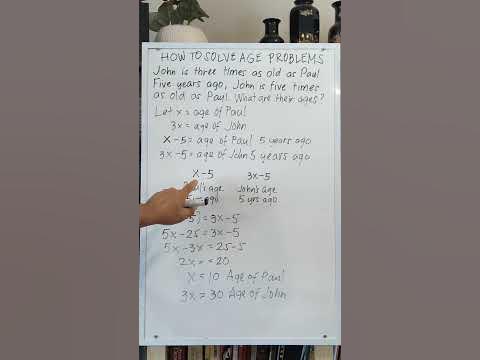 HOW TO SOLVE AGE PROBLEMS
John is three times as old as Paul
Five years ago, John is five times
as old as Paul. What are their ages?
Let x = age of Paul
3x = age of John
x-5 = age of Paul 5 years ago
3x-5 = age of John 5 years ago
x-5 3x-5
age John's age
ago 5 yrs ago
5) = 3x-5
5x-25 = 3x-5
5x-3x = 25-5
2x = =20
x = 10 Age of Paul
3x = 30 Age of John